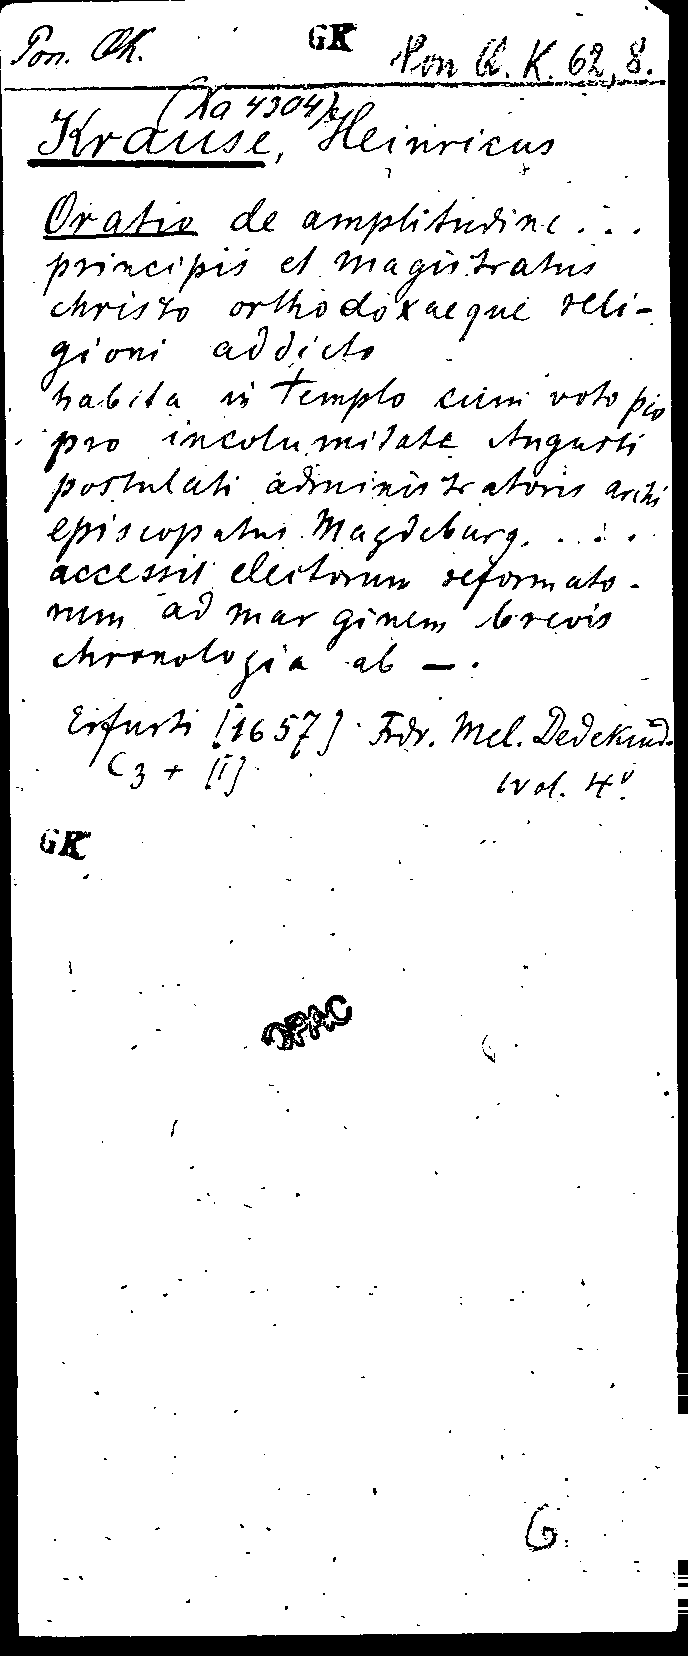 Pon. QK. GK Pon Q. K. 62, 8.
(Xa 4304)
Krause, Heinricus
Oratio de amplitudine . . .
principis et magistratus
christo orthodoxaeque reli-
gioni addicto
habita in templo cum voto pio
pro incolumitate Augusti
postulati administratoris archi
episcopatus Magdeburg. . . .
accessit electorum reformato-
rum ad marginem brevis
chronologia ab —.
Erfurti [1657] Frdr. Mel. Dedekind.
C3 + [1] 1 vol. 4°.
GK
OPAC
G.